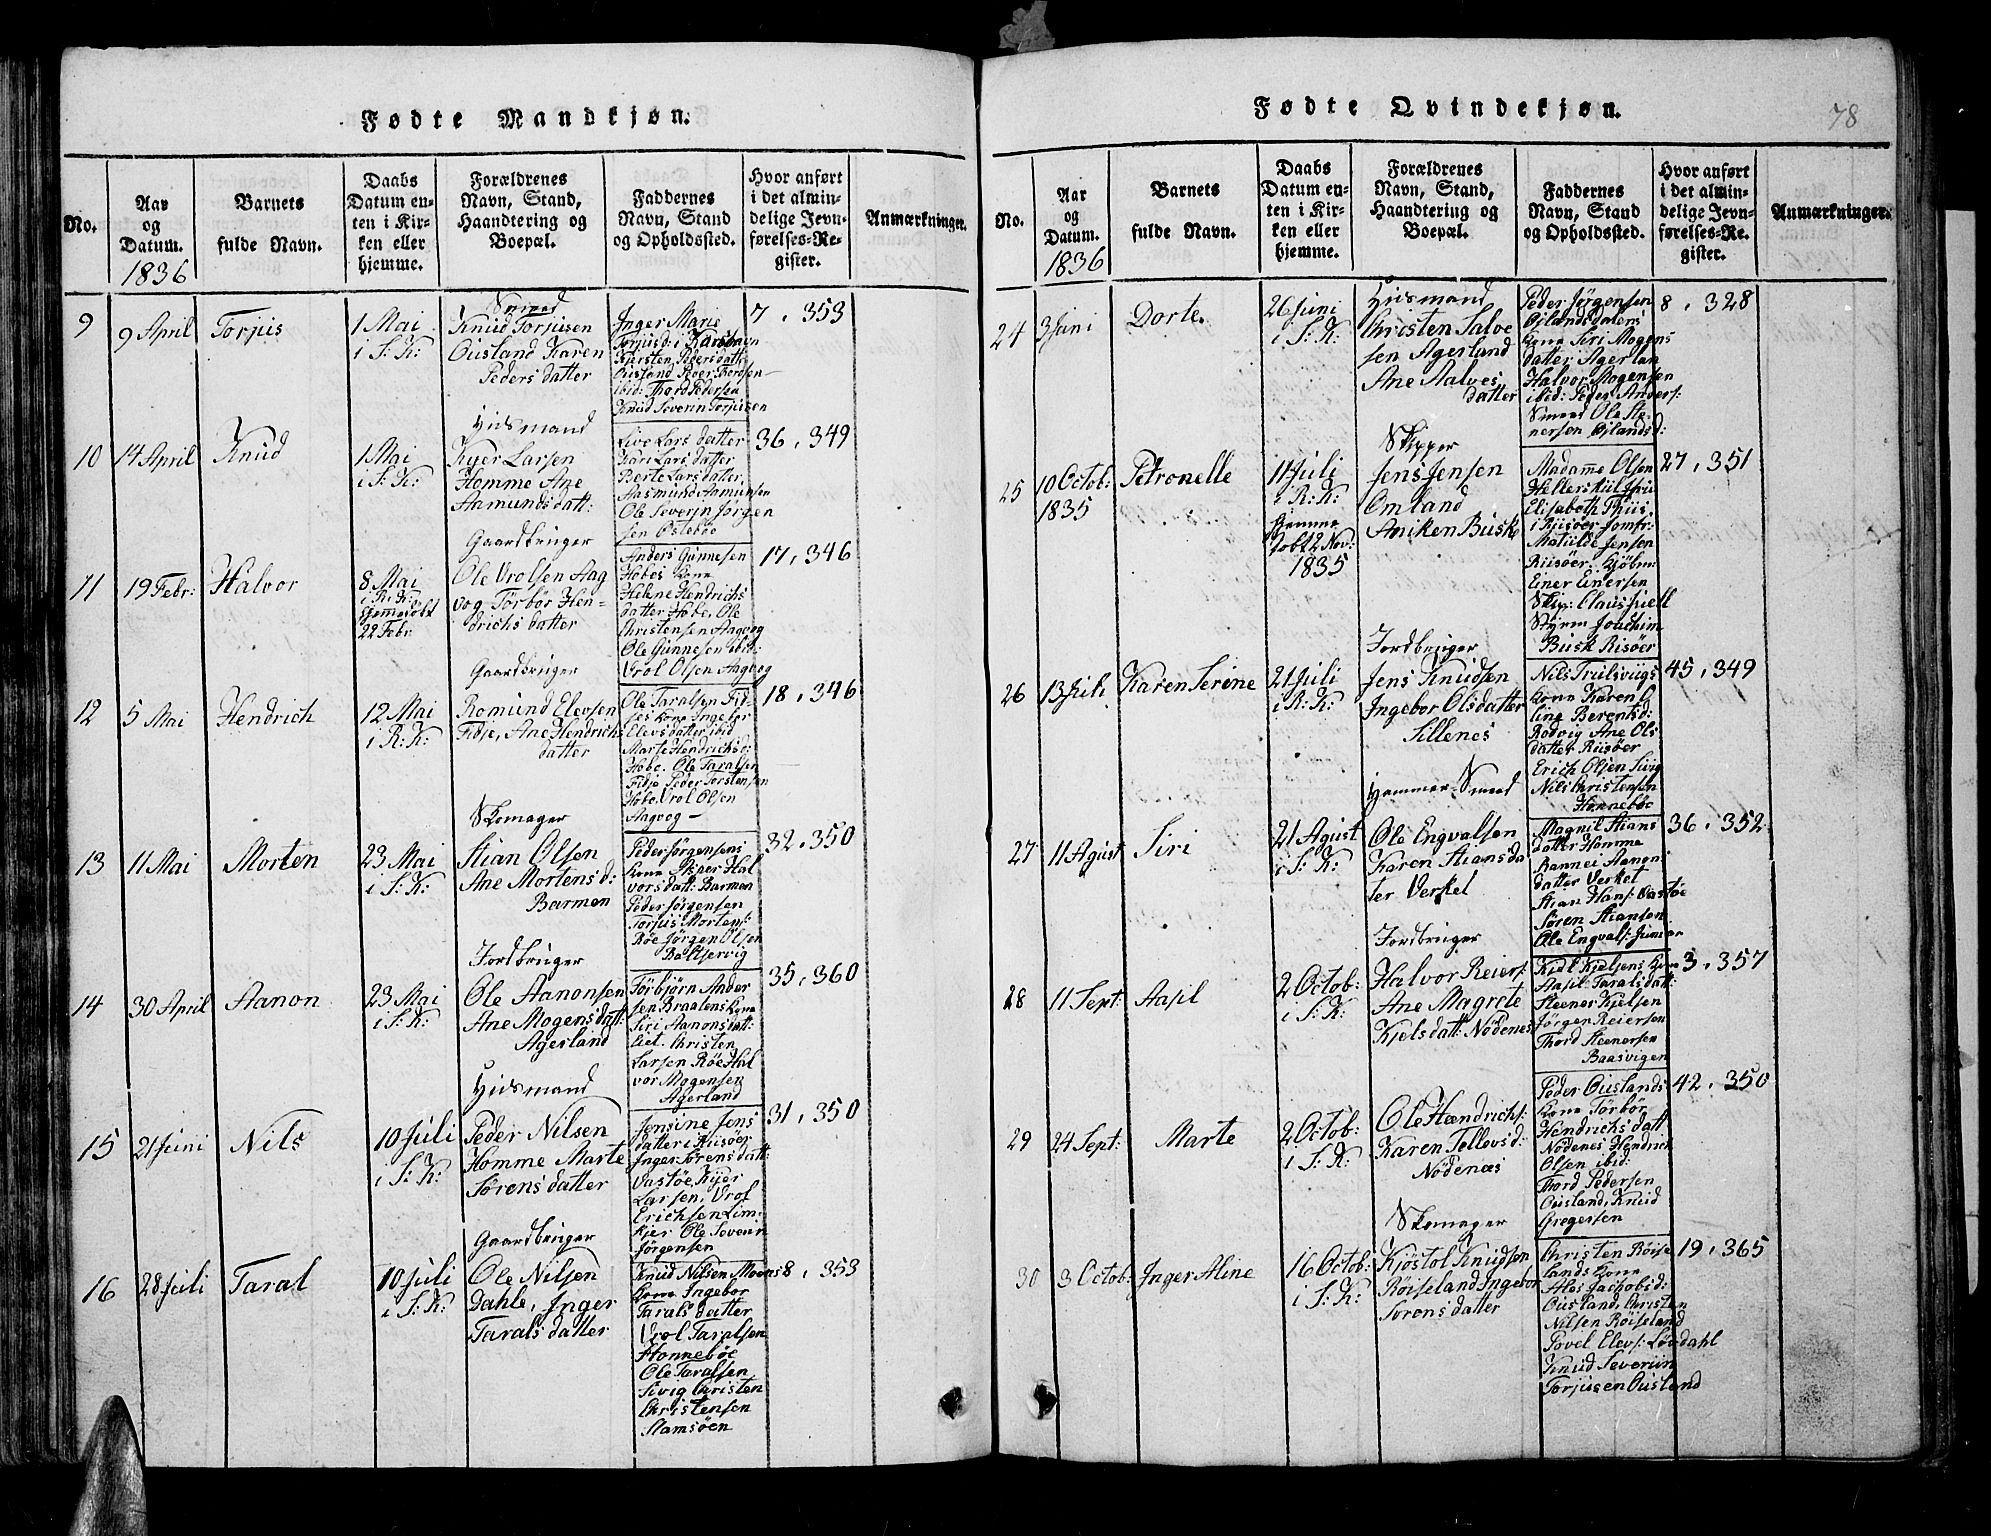 Fødte Mandkjøn.
No.
Aar
og
Datum.
1836
Barnets
fulde Navn.
Daabs
Datum en-
ten i Kir-
ken eller
hjemme.
Forældrenes
Navn, Stand,
Haandtering og
Boepæl.
Faddernes
Navn, Stand
og Opholdssted.
Hvor anført
i det almin-
delige Jevn-
førelses-Re-
gister.
Anmærkninger.
9
9 April
Torjus
1 Mai
i S: K:
Smed
Knud Torjusen
Ousland Karen
Peders datter
Inger Marie
Kjersten Peders datt:
ibid: Thord Pedersen
Knud Severin Torjusen
7, 353
10
14 April
Knud
1 Mai
i S: K:
Huusmand
Kyer Larsen
Homme Ane
Aamunds datt:
Live Lars datter
Kari Lars datter
Berte Lars datter
Aasmund Aamunsen
Ole Severjn Jørgen
sen Østebøe
36, 349
11
19 Febr:
Halvor
8 Mai
i R: K:
hjemedøbt
22 Febr
Gaardbruger
Ole Vrolsen Aag
vog Torbør Hen-
drichs datter
Anders Gunnesen
Hobes Kone
Helene Hendrichs
datter Hobe. Ole
Christensen Aagvog
Ole Gunnesen ibid:
Vrol Olsen Aagvog
17, 346
12
5 Mai
Hendrich
12 Mai
i R: K:
Gaardbruger
Romund Elevsen
Fidje, Ane Hendrichs
datter
Ole Taralsen Fid-
jes Kone Ingebor
Elevs datter ibid
Marte Hendrichs d:
Hobe. Ole Taralsen
Fidje Peder Torstensen
Hobe. Vrol Olsen
Aagvog —
18, 346
13
11 Mai
Morten
23 Mai
i S: K:
Skomager
Stian Olsen
Ane Mortens d:
Barmen
Peder Jørgensens
Kone Asper Hal
vors datt: Barmen
Peder Jørgensen
Torjus Mortens:
Røe Jørgen Olsen
32, 350
14
30 April
Aanon
23 Mai
i S: K:
Jordbruger
Ole Aanonsen
Ane Mogens datt:
Agerland
Torbjørn Ander
sen Braatens Kone
Siri Aanons datt:
Christen
Larsen Røe Hal
vor Mogensen
Agerland
35, 360
15
21 Juni
Nils
10 Juli
i S: K:
Huusmand
Peder Nilsen
Homme Marte
Sørens datter
Jensine Jens
datter i Riisøer
Inger Sørens datt:
Vastøe, Kyer
Larsen, Vrol
Erichsen Lim-
kjer Ole Severin
Jørgensen
31, 350
16
28 Juli
Taral
10 Juli
i S: K:
Gaardbruger
Ole Nilsen
Dahle, Inger
Tarals datter
Knud Nilsen Moens
Kone Ingebor
Tarals datter
Vrol Taralsen
Honnebøe
Ole Taralsen
Sivig Christen
Christensen
Stamsøen
8, 353
Fødte Qvindekjøn.
78
No.
Aar
og
Datum.
1836
Barnets
fulde Navn.
Daabs
Datum en-
ten i Kir-
ken eller
hjemme.
Forældrenes
Navn, Stand,
Haandtering og
Boepæl.
Faddernes
Navn, Stand
og Opholdssted.
Hvor anført
i det almin-
delige Jevn-
førelses-Re-
gister.
Anmærkninger.
24
3 Juni
Dorte.
26 Juni
i S: K:
Huusmand
Christen Salve
sen Agerland
Ane Aalves
datter
Peder Jørgensen
Øilandsdalens
Kone Siri Mogens
datter Agerlan
Halvor Mogensen
ibid: Peder Anders:
Smed Ole Ste-
nersen Øilandsd:
8, 328
25
10 Octob:
1835
Petronelle
11 Juli
i R: K:
hjemme
døbt 2 Nov:
1835
Skipper
Jens Jensen
Omland
Aniken Busk
Madame Olsen
Elisabeth Thiis
i Riisøer Jomfr:
Matilde Jensen
Riisøer. Kjøbm:
Einer Einersen
Styrm Joachim
Busk Risøer
27, 351
26
13 Juli
Karen Serine
21 Juli
i R: K:
Jordbruger
Jens Knudsen
Ingebor Olsdatter
Sillenes
Nils Truls viigs
Kone Karen E
line Berents d:
Rødvig Ane Ols
datter Riisøer
Erich Olsen Siiv
Nils Christensen
Honnebøe
45, 349
27
11 Agust
Siri
21 Agust
i S: K:
Hammer-Smed
Ole Engvalsen
Karen Stians da
ter Verket
Magnil Stians
datter Homme
Rannei Aanon
datter Verket
Stian Hans: Vastøe
Søren Stiansen
Ole Engvals: Junior
36, 352
28
11 Sept:
Aasil
2 Octob:
i S: K:
Jordbruger
Halvor Reiers:
Ane Magrete
Kjels datt: Nødenes
Kiel Kjelsens Kone
Aasil Tarals datt:
Steener Kjelsen
Jørgen Reiersen
Thord Steenersen
Baasvigen
3, 357
29
24 Sept:
Marte
2 Octob:
i S: K:
Ole Hendrichs:
Karen Tellevs d:
Nødenæs
Peder Ouslands
Kone Torbør
Hendrichs datt
Nødenes Hendrich
Olsen ibid:
Thord Pedersen
Ousland, Knud
Gregersen
42, 350
30
3 Octob:
Inger Aline
16 Octob:
i S: K:
Skomager
Kjøstol Knudsen
Røiseland Ingebor
Sørens datter
Christen Røise
lands Kone
Ales Jachobs d:
Ousland, Christen
Nilsen Røiseland
Povel Elevs: Løvdahl
Knud Severiin
Torjusen Ousland
19, 365